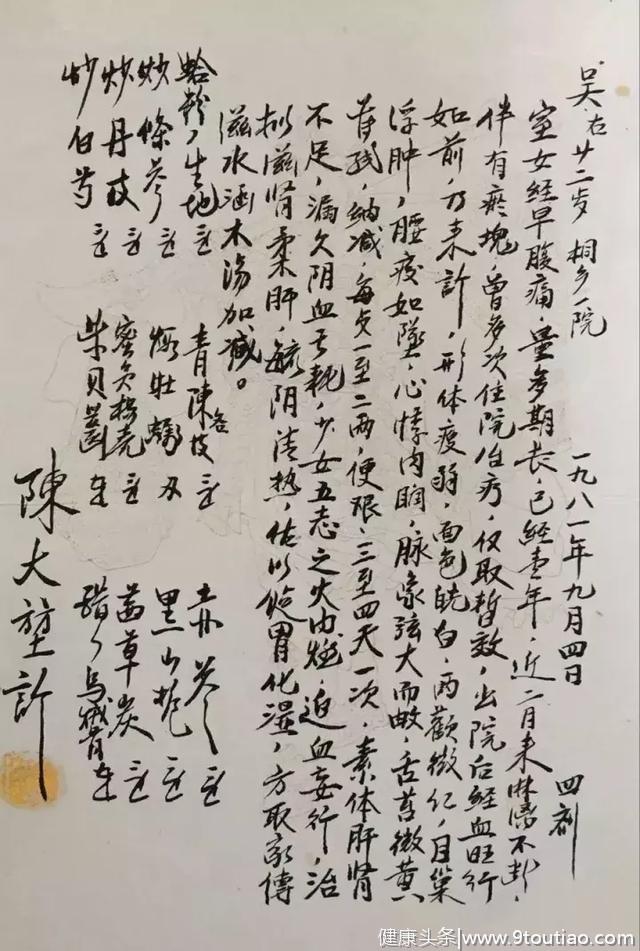 吴右 廿二岁 桐乡一院 一九八一年九月四日 四剂
室女经早腹痛，量多期长，已经壹年，近二月来淋漓不断，
伴有瘀块，曾多次住院治疗，仅取暂效，出院后经血旺行
如前，乃来诊，形体疲弱，面色㿠白，两颧微红，目窠
浮肿，腰痠如坠，心悸肉瞤，脉象弦大而，舌苔微黄
，纳减每贞一至二两，便艰，三至四天一次，素体肝肾
不足，漏久阴血亏耗，少女五志之火内燃，迫血妄行，治
拟滋肾柔肝，毓阴清热，佐以胃化湿，方取家传
滋水涵木汤加减。
蛤粉ノ生地 青陈各 赤参
炒條参 煅牡蛎 黑山栀
炒丹皮 蜜灸壳 茜草炭
炒白芍 柴 乌贼骨
陳大堃診
健康头条|www.9toutiao.com